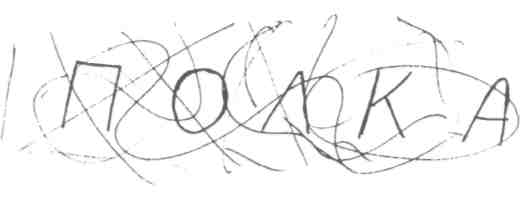 ПОЛКА